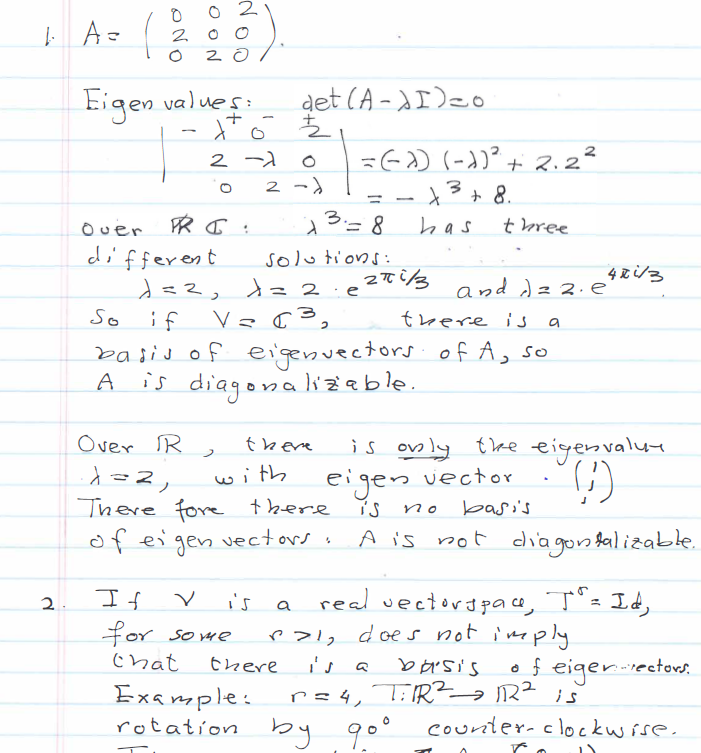 1. A = ( 0 0 2
2 0 0
0 2 0 ).
Eigenvalues: det(A-λI)=0
| -λ⁺ 0⁻ 2⁺
2 -λ 0 | = (-λ)(-λ)² + 2.2²
0 2 -λ | = -λ³ + 8.
over ℝ ℂ : λ³ = 8 has three
different solutions:
λ=2, λ= 2·e^{2πi/3} and λ=2·e^{4πi/3}.
So if V = ℂ³, there is a
basis of eigenvectors of A, so
A is diagonalizable.
Over ℝ, there is only the eigenvalue
λ=2, with eigenvector (1 1 1)
Therefore there is no basis
of eigenvectors. A is not diagonalizable.
2. If V is a real vectorspace, T^r = Id,
for some r>1, does not imply
that there is a basis of eigenvectors.
Example: r=4, T:ℝ²→ℝ² is
rotation by 90° counter-clockwise.